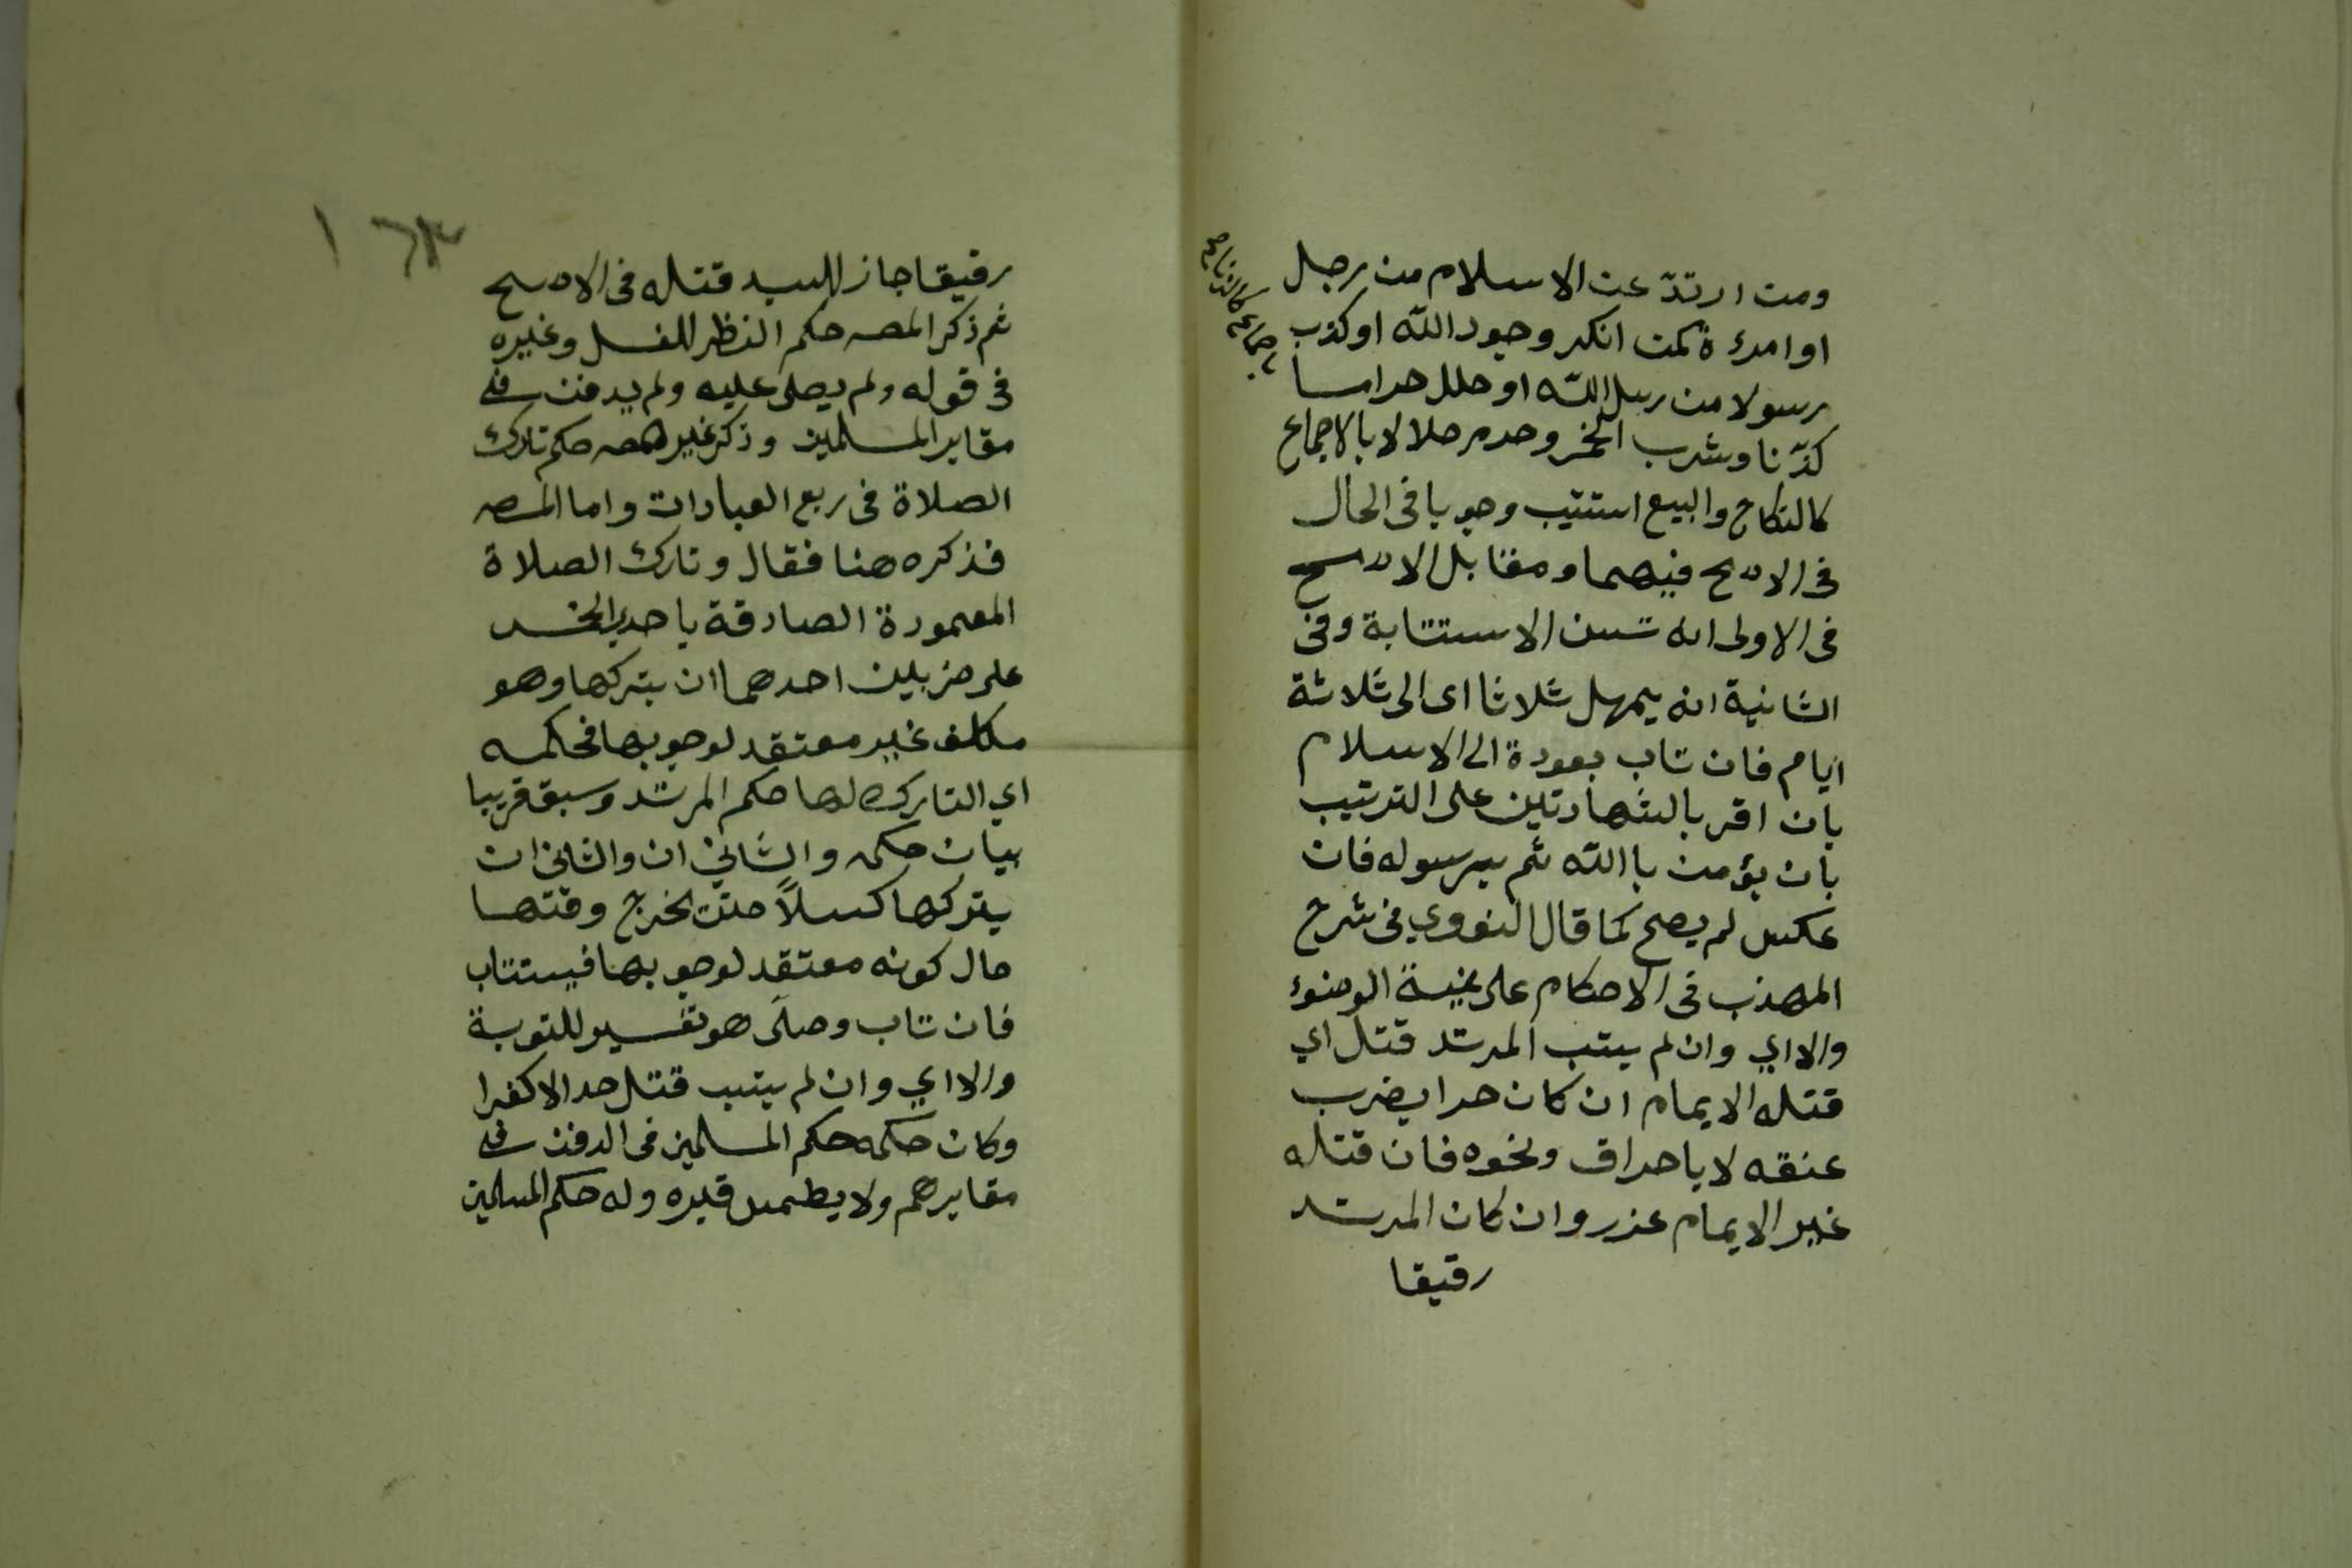 ومن ارتدّ عن الاسلام من رجل
او امرءة كمن انكر وجود الله او كذب
رسولا من رسل الله او حلل حراما
كزّنا وشرب الخمر وحرم حلالا بالاجماع
كالنكاح والبيع استتيب وجوبا في الحال
في الاصح فيهما ومقابل الاصح
في الاولى انه تسن الاستتابة وفى
الثانية انه يمهل ثلاثا اى الى ثلاثة
ايام فان تاب بعودة الى الاسلام
بان اقر بالشهادتين على الترتيب
بان يؤمن باالله ثم برسوله فان
عكس لم يصح كما قال النووي في شرح
المهذب في الاحكام على نية الوضوء
والا اي وان لم يتب المرتد قتل اي
قتله الايمام ان كان حرا بضرب
عنقه لا باحراق ونحوه فان قتله
غير الايمام عزر وان كان المرتد
رقيقا
اجماع كالزنا
رقيقا جاز للسيد قتله في الاصح
ثم ذكر المصـ حكم النظر للغسل وغيره
في قوله ولم يصلى عليه ولم يدفن في
مقابر المسلمين وذكر غير المصـ حكم تارك
الصلاة في ربع العبادات واما المصـ
فذكره هنا فقال وتارك الصلاة
المعمودة الصادقة باحدى الخمس
على ضربين احدهما ان يتركها وهو
مكلف غير معتقد لوجوبها فحكمه
اي التارك لها حكم المرتد وسبق قريبا
بيان حكمه والثاني ان والثاني ان
يتركها كسلاً حتى يخرج وقتها
حال كونه معتقد لوجوبها فيستتاب
فان تاب وصلى هو تفسير للتوبة
والا اي وان لم يتب قتل حد الا كفرا
وكان حكمه حكم المسلمين في الدفن في
مقابرهم ولا يطمس قبره وله حكم المسلمين